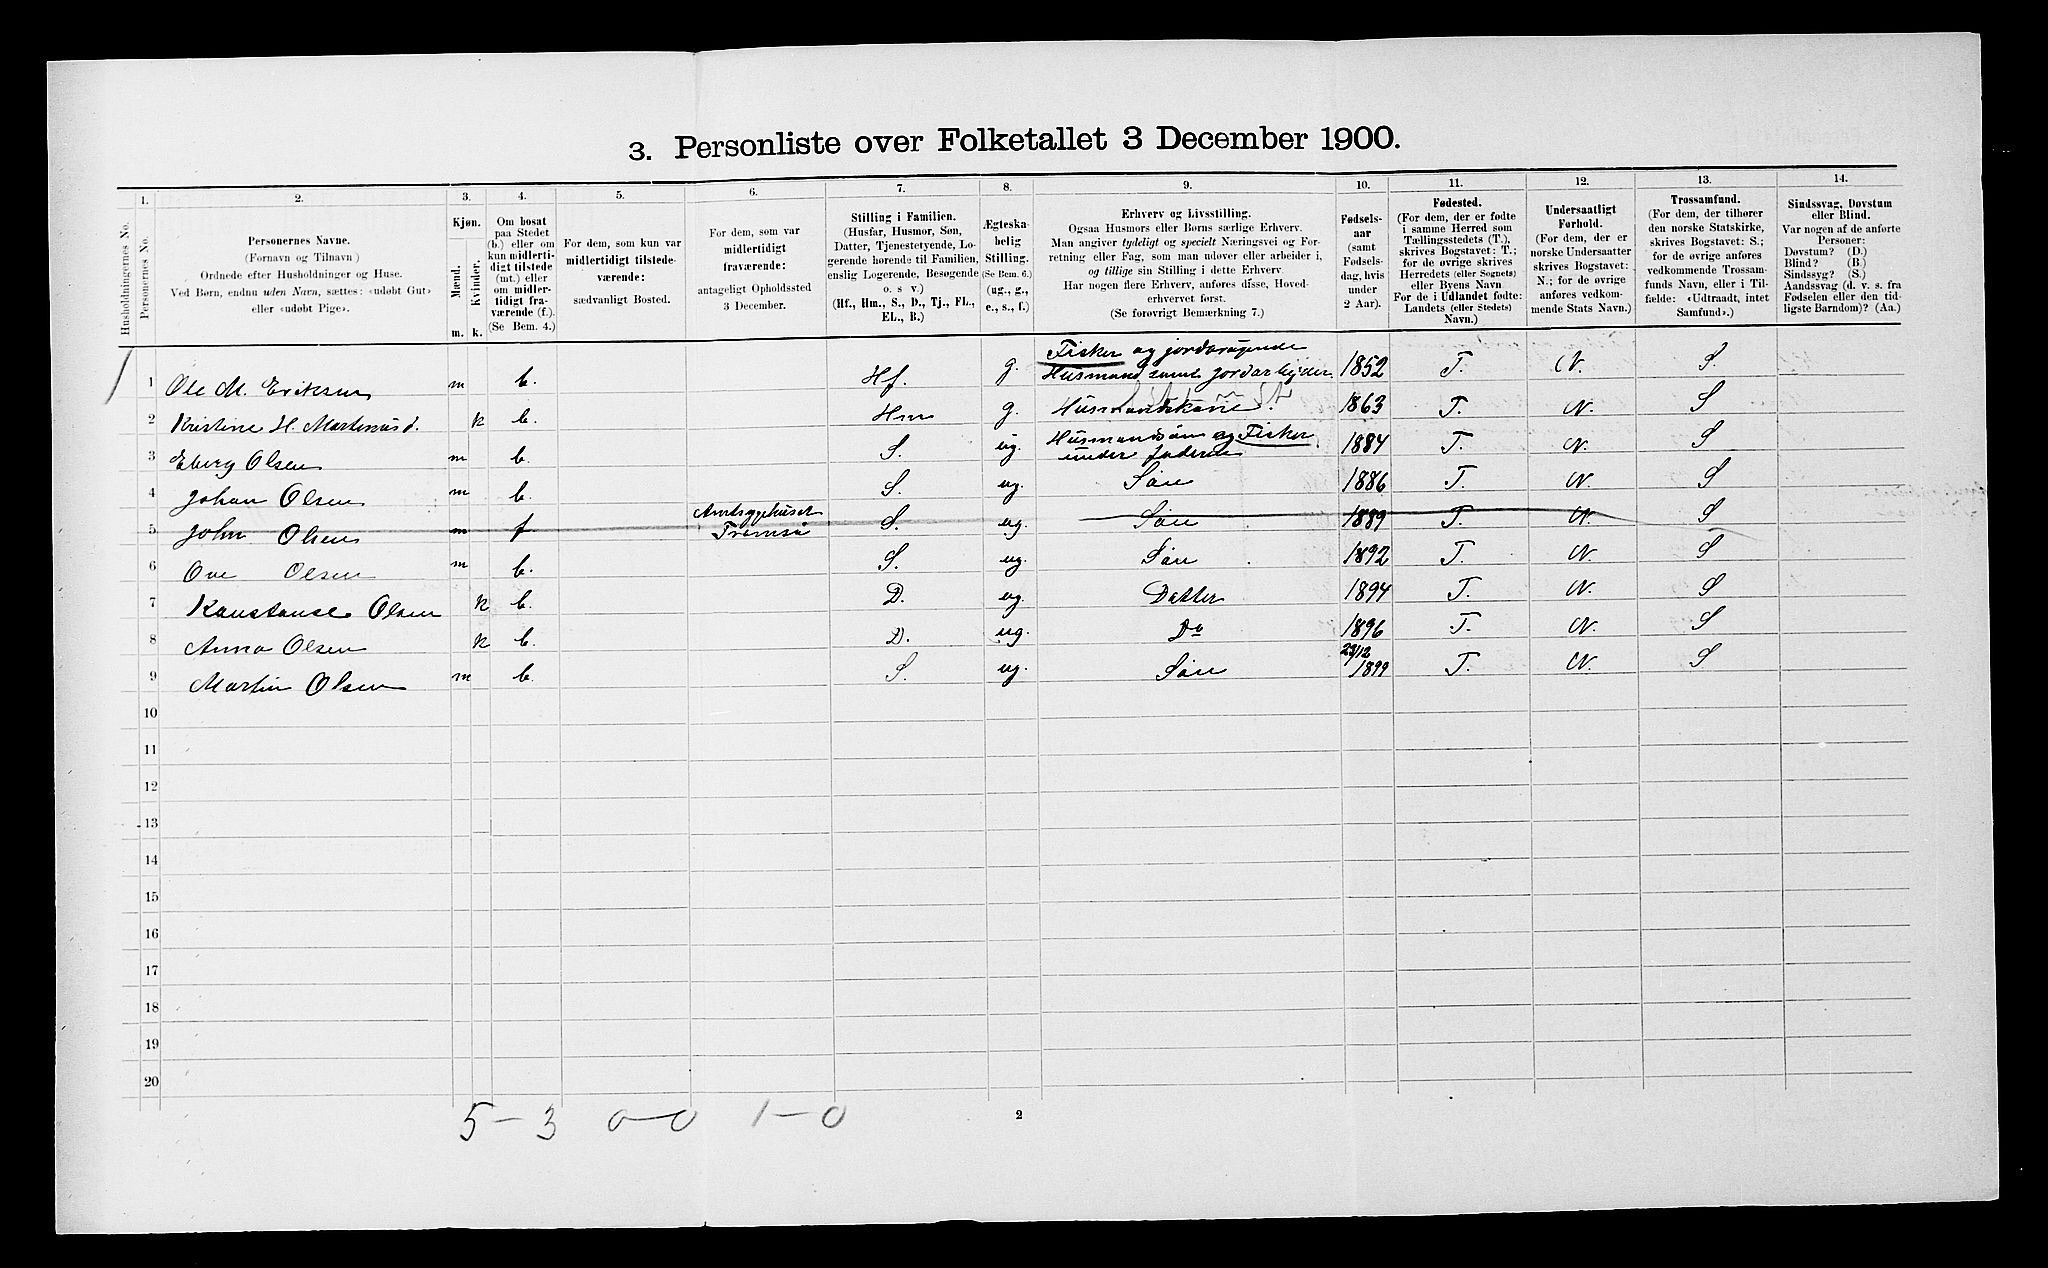 3. Personliste over Folketallet 3 December 1900.
1. 2. 3. 4. 5. 6. 7. 8. 9. 10. 11. 12. 13. 14.
Husholdningernes No.
Personernes No.
Personernes Navne.
(Fornavn og Tilnavn)
Ordnede efter Husholdninger og Huse.
Ved Børn, endnu uden Navn, sættes: «udøbt Gut»
eller «udøbt Pige».
Kjøn.
Mænd.
Kvinder.
m. k.
Om bosat
paa Stedet
(b.) eller om
kun midlerti-
digt tilstede
(mt.) eller
om midler-
tidigt fra-
værende (f.).
(Se Bem. 4.)
For dem, som kun var
midlertidigt tilstede-
værende:
sædvanligt Bosted.
For dem, som var
midlertidigt
fraværende:
antageligt Opholdssted
3 December.
Stilling i Familien.
(Husfar, Husmor, Søn,
Datter, Tjenestetyende, Lo-
gerende hørende til Familien,
enslig Logerende, Besøgende
o. s v.)
(Hf., Hm., S., D., Tj., FL.,
EL., B.)
Ægteska-
belig
Stilling.
(Se Bem. 6.)
(ug., g.,
e., s., f.)
Erhverv og Livsstilling.
Ogsaa Husmors eller Børns særlige Erhverv.
Man angiver tydeligt og specielt Næringsvei og For-
retning eller Fag, som man udøver eller arbeider i,
og tillige sin Stilling i dette Erhverv.
Har nogen flere Erhverv, anføres disse, Hoved-
erhvervet først.
(Se forøvrigt Bemærkning 7.)
Fødsels-
aar
(samt
Fødsels-
dag, hvis
under
2 Aar).
Fødested.
(For dem, der er fødte
i samme Herred som
Tællingsstedets (T.),
skrives Bogstavet: T.;
for de øvrige skrives
Herredets (eller Sognets)
eller Byens Navn
For de i Udlandet fødte:
Landets (eller Stedets)
Navn.)
Undersaatligt
Forhold.
(For dem, der er
norske Undersaatter
skrives Bogstavet:
N.; for de øvrige
anføres vedkom-
mende Stats Navn.)
Trossamfund.
(For dem, der tilhører
den norske Statskirke,
skrives Bogstavet: S.;
for de øvrige anføres
vedkommende Trossam-
funds Navn, eller i Til-
fælde: «Udtraadt, intet
Samfund».)
Sindssvag, Døvstum
eller Blind.
Var nogen af de anførte
Personer:
Døvstum? (D.)
Blind? (B.)
Sindssyg? (S.)
Aandssvag (d. v. s. fra
Fødselen eller den tid-
ligste Barndom)? (Aa.)
1 Ole M. Eriksen m b. Hf. g. Fisker og jordbrugende
Husmand samt jordarbeider 1852 T. N. S.
2 Kristine H. Martinusd. k b. Hm g. Husmandskone. 1863 T. N. S
3 Eberg Olsen m b. S. ug. Husmandssøn og Fisker
under faderen 1884 T. N. S
4 Johan Olsen m b. S. ug. Søn 1886 T. N. S
5 John Olsen m f Amtssygehuset
Tromsø S. ug. Søn 1889 T. N. S
6 Ove Olsen m b. S. ug. Søn 1892 T. N. S
7 Konstanse Olsen k b. D. ug. Datter 1894 T. N. S
8 Anna Olsen k b. D. ug. Do 1896 T. N. S
9 Martin Olsen m b. S. ug. Søn 23/12
1899 T. N. S
10
11
12
13
14
15
16
17
18
19
20
5 - 3 0-0 1-0
2